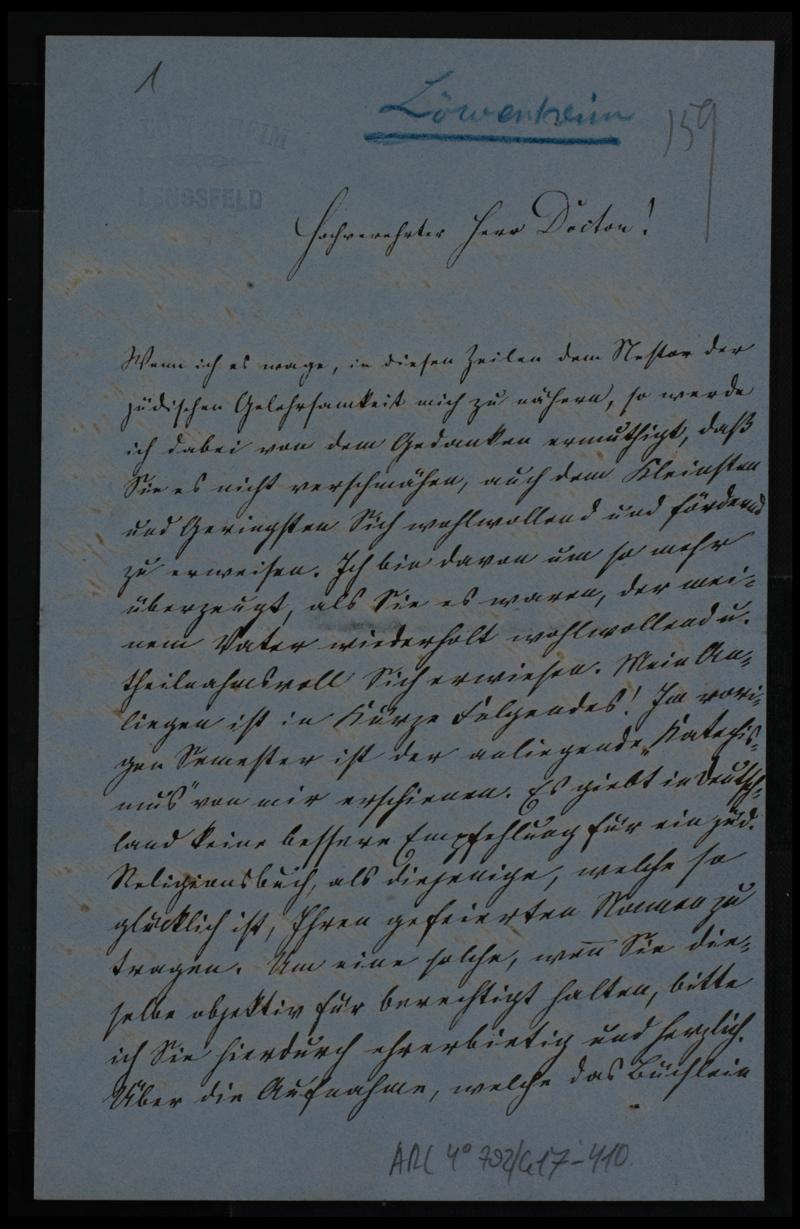 1
Löwenheim
159
LÖWENHEIM
LENGSFELD
Hochverehrter Herr Doctor!
Wenn ich es wage, in diesen Zeilen dem Nestor der
jüdischen Gelehrsamkeit mich zu nähern, so werde
ich dabei von dem Gedanken ermuthigt, daß
Sie es nicht verschmähen, auch dem Kleinsten
und Geringsten Sich wohlwollend und fördernd
zu erweisen. Ich bin davon um so mehr
überzeugt, als Sie es waren, der mei-
nem Vater wiederholt wohlwollend u.
theilnahmsvoll Sich erwiesen. Mein An-
liegen ist in Kürze Folgendes! Im vori-
gen Semester ist der anliegende „Katechis-
mus" von mir erschienen. Es giebt in Deutsch-
land keine bessere Empfehlung für ein jüd.
Religionsbuch, als diejenige, welche so
glücklich ist, Ihren gefeierten Namen zu
tragen. Um eine solche, wen̄ Sie die-
selbe objektiv für berechtigt halten, bitte
ich Sie hierdurch ehrerbietig und herzlich.
Über die Aufnahme, welche das Büchlein
ARC 4° 792/G17-410